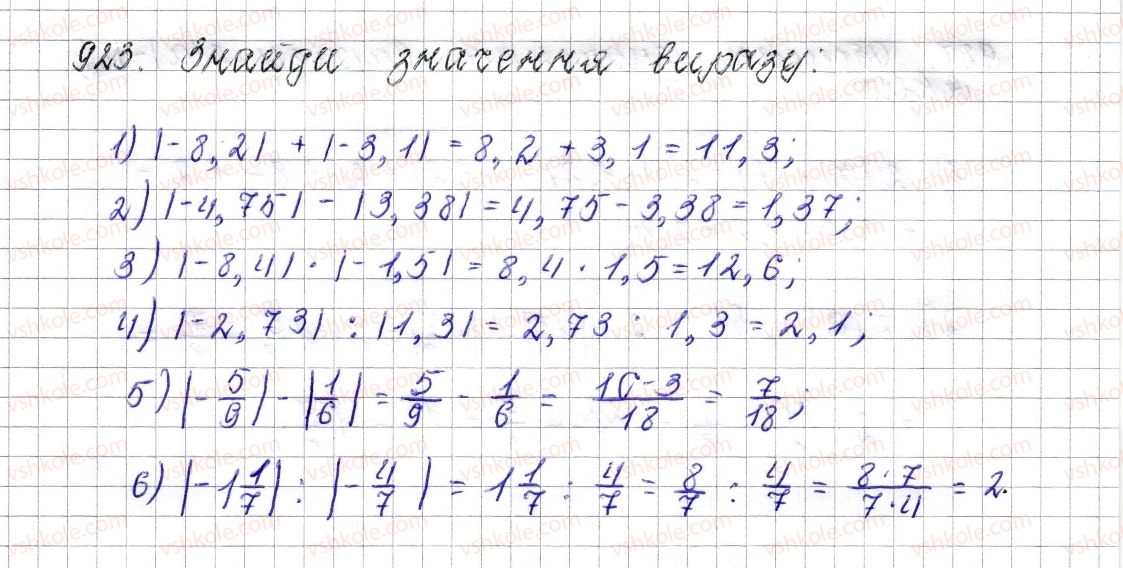 923. Знайди значення виразу:
1) |-8,2| + |-3,1| = 8,2 + 3,1 = 11,3;
2) |-4,75| - |3,38| = 4,75 - 3,38 = 1,37;
3) |-8,4| · |-1,5| = 8,4 · 1,5 = 12,6;
4) |-2,73| : |1,3| = 2,73 : 1,3 = 2,1;
5) |-5/9| - |1/6| = 5/9 - 1/6 = (10-3)/18 = 7/18;
6) |-1 1/7| : |-4/7| = 1 1/7 : 4/7 = 8/7 : 4/7 = (8·7)/(7·4) = 2.